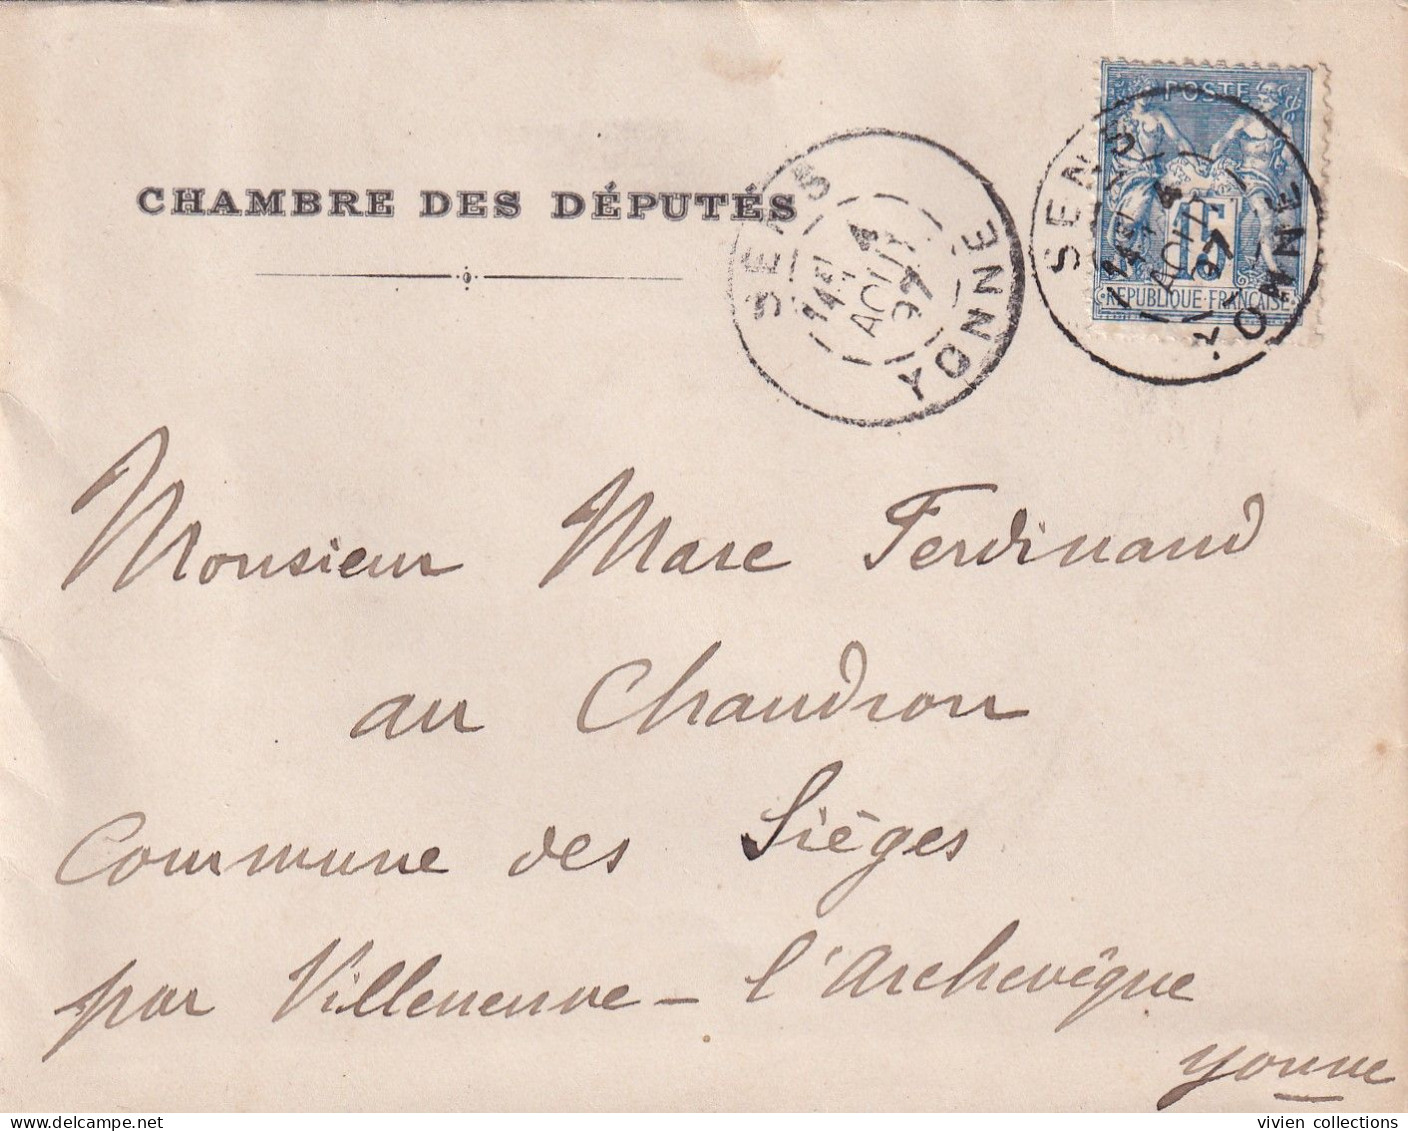 CHAMBRE DES DÉPUTÉS
SENS
4
AOUT
97
YONNE
POSTE
15
REPUBLIQUE FRANÇAISE
SENS
4
AOUT
97
YONNE
Monsieur Marc Ferdinand
au Chaudron
Commune des Sièges
par Villeneuve-l'Archevêque
Yonne
vivien collections